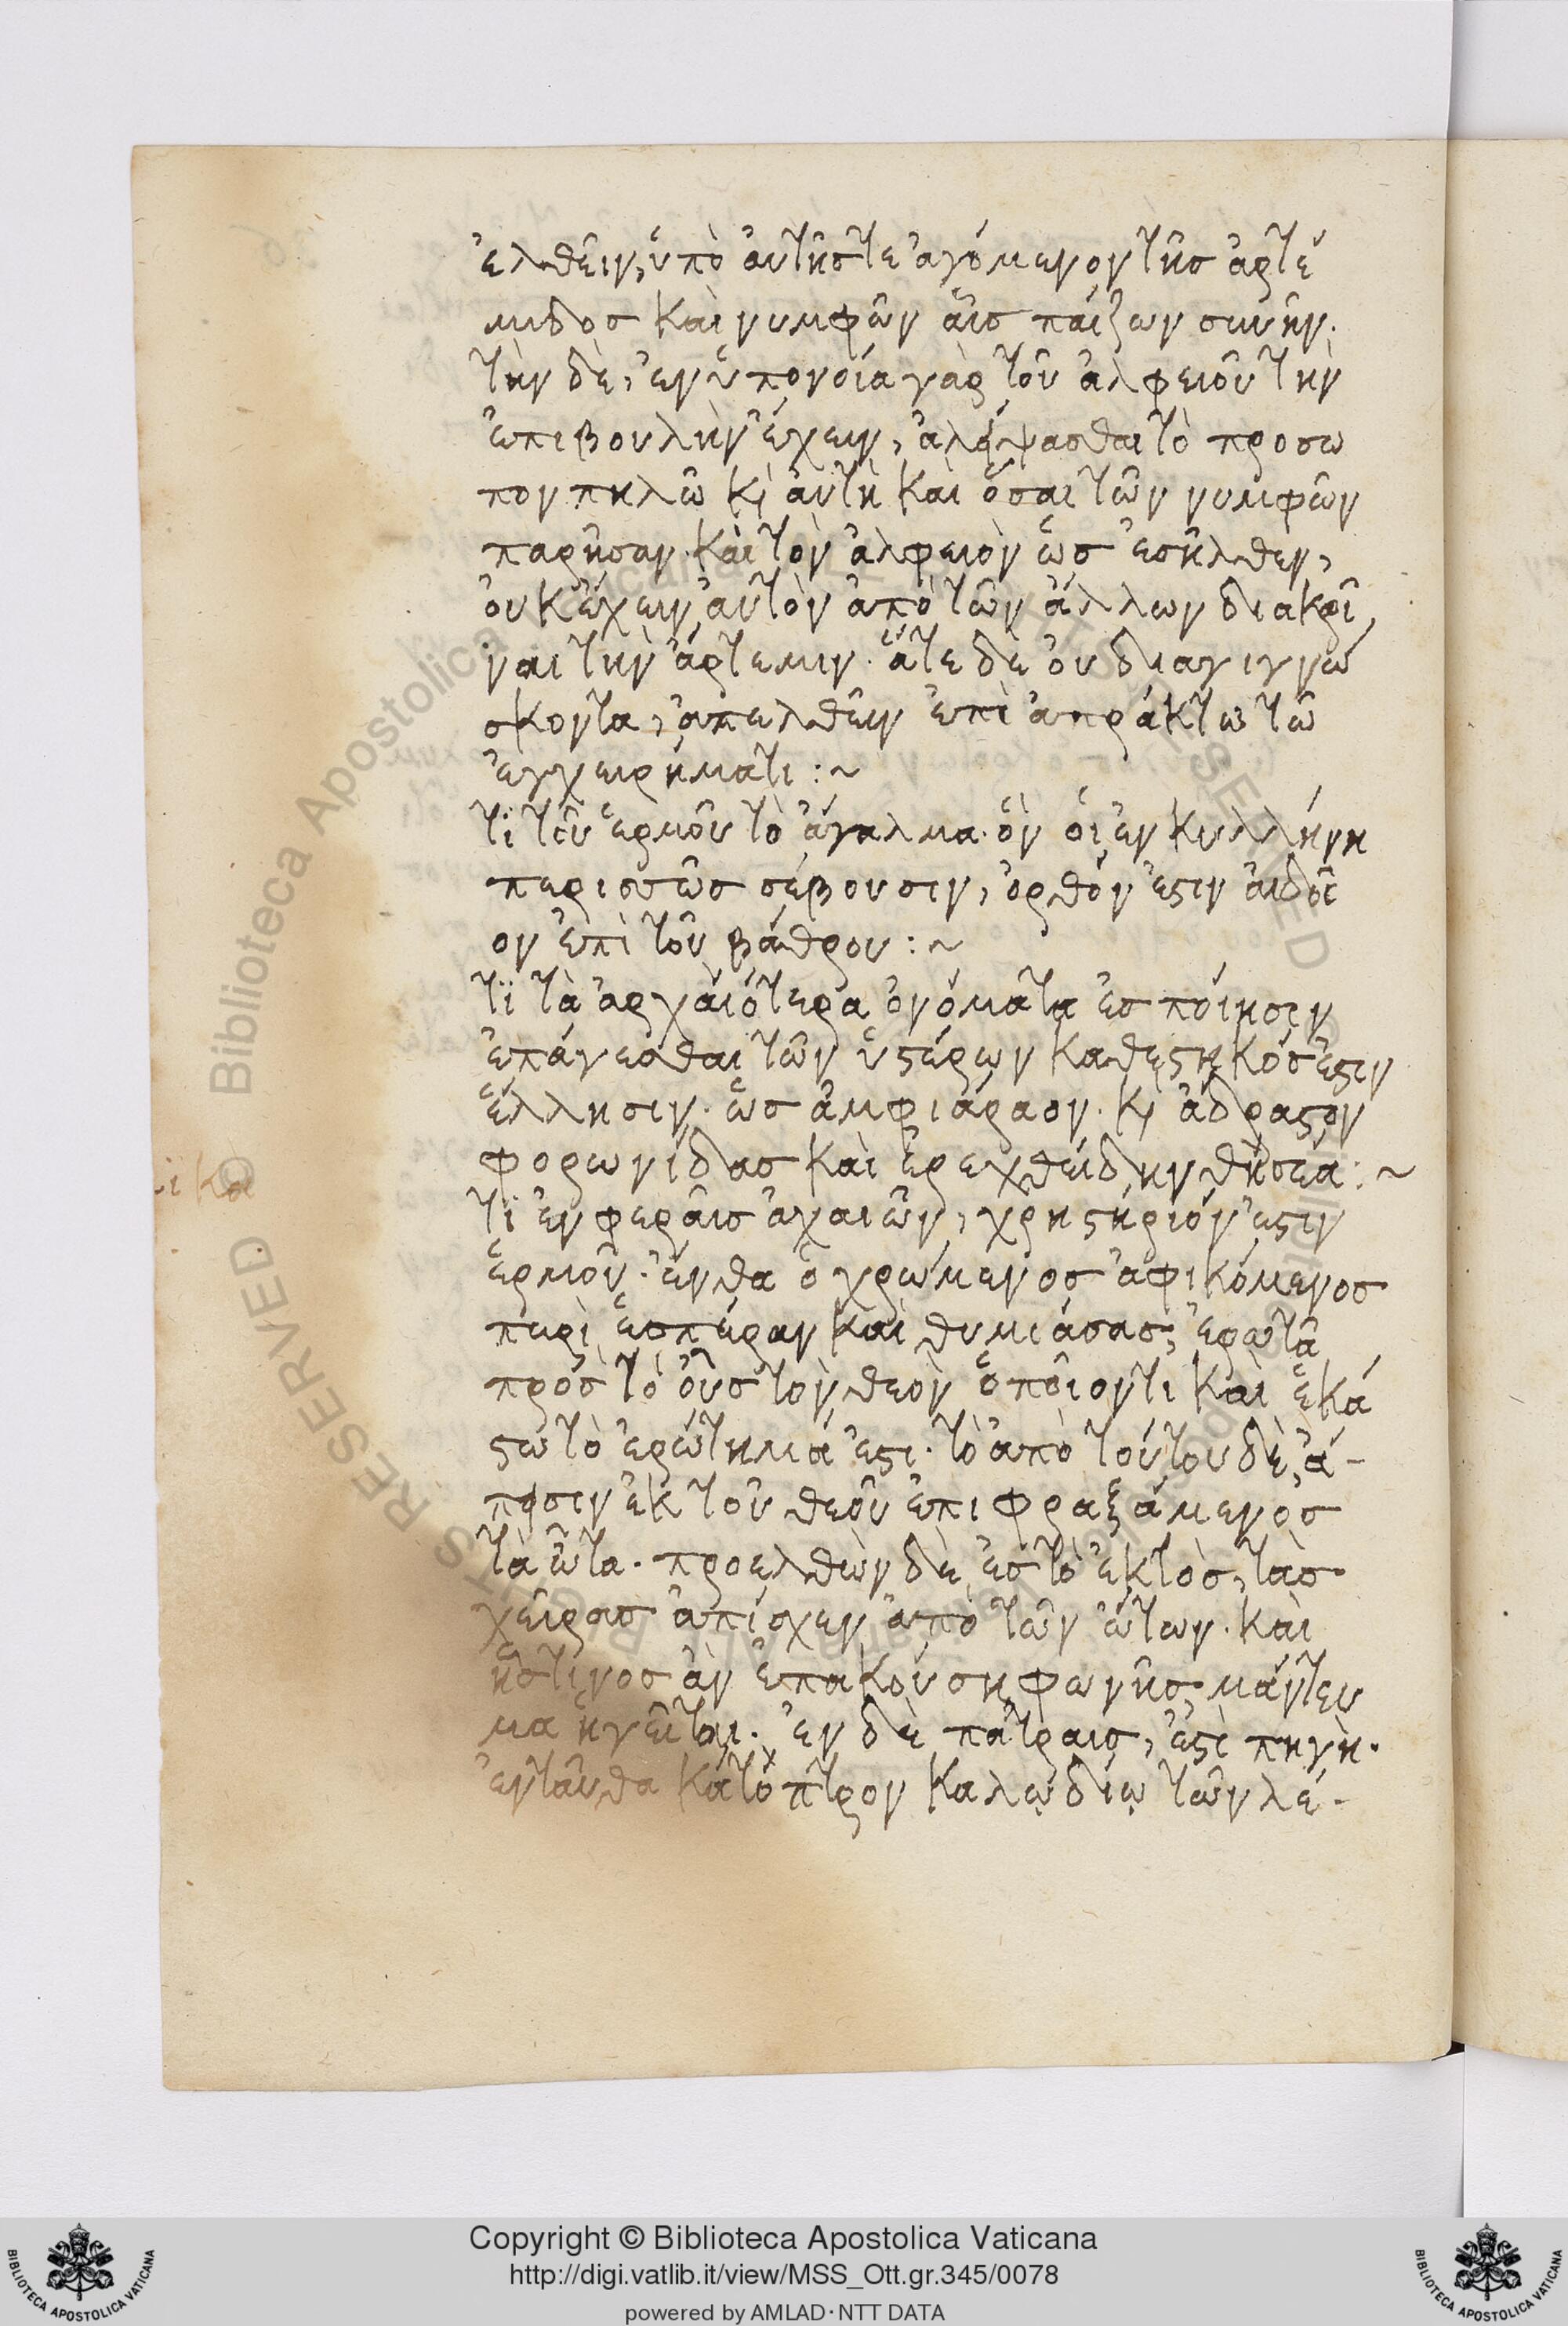 ἐλθεῖν, ὑπὸ αὐτῆς τε ἀγόμενον τῆς ἀρτέ
μιδος καὶ νυμφῶν αἷς παίζων συνῆν.
τὴν δὲ, ἐν ὑπονοία γὰρ τοῦ ἀλφειοῦ τὴν
ἐπιβουλὴν ἔχειν, ἀλείψασθαι τὸ προσω
πον πηλῶ κ αὐτὴ καὶ ὅσαι τῶν νυμφῶν
παρῆσαν. καὶ τὸν ἀλφειὸν ὡς ἐσῆλθεν,
οὐκ ἔχειν αὐτὸν ἀπὸ τῶν ἄλλων διακρῖ
ναι τὴν ἄρτεμιν. ἅτε δὲ οὐ διαγιγνώ
σκοντα, ἀπελθεῖν ἐπὶ ἀπράκτω τῶ
ἐγχειρήματι :~
τϊ τοῦ ἑρμοῦ τὸ ἄγαλμα. ὃν οἱ ἐν κυλλήνη
περισσῶς σέβουσιν, ὀρθόν ἐστιν αἰδοῖ
ον ἐπὶ τοῦ βάθρου :~
τϊ τὰ ἀρχαιότερα ὀνόματα ἐς ποίησιν
ἐπάγεσθαι τῶν ὑστέρων καθεστηκός ἐστιν
ἕλλησιν. ὡς ἀμφιάραον. κ ἄδραστον
φορωνίδας καὶ ἐρεχθείδην θησέα :~
τϊ ἐν φεραῖς ἀχαιῶν, χρηστήριόν ἐστιν
ἑρμοῦ. ἔνθα ὁ χρώμενος ἀφικόμενος
περὶ ἑσπέραν καὶ θυμιάσας, ἐρωτᾶ
πρὸς τὸ οὖς τὸν θεὸν ὁποῖον τι καὶ ἑκά
στω τὸ ἐρώτημά ἐστι. τὸ ἀπὸ τούτου δὲ, ἄ-
πεισιν ἐκ τοῦ θεοῦ ἐπιφραξάμενος
τὰ ὦτα. προελθὼν δὲ ἐς τὸ ἐκτὸς, τὰς
χεῖρας ἀπέσχεν ἀπὸ τῶν ὤτων. καὶ
ἧς τινος ἂν ἐπακούση φωνῆς μάντευ
μα ἡγεῖται. ἐν δὲ πάτραις, ἐστὶ πηγὴ.
ἐνταῦθα κάτοπτρον καλῳδίῳ τῶν λε-
ϊκα
Copyright © Biblioteca Apostolica Vaticana
http://digi.vatlib.it/view/MSS_Ott.gr.345/0078
powered by AMLAD·NTT DATA